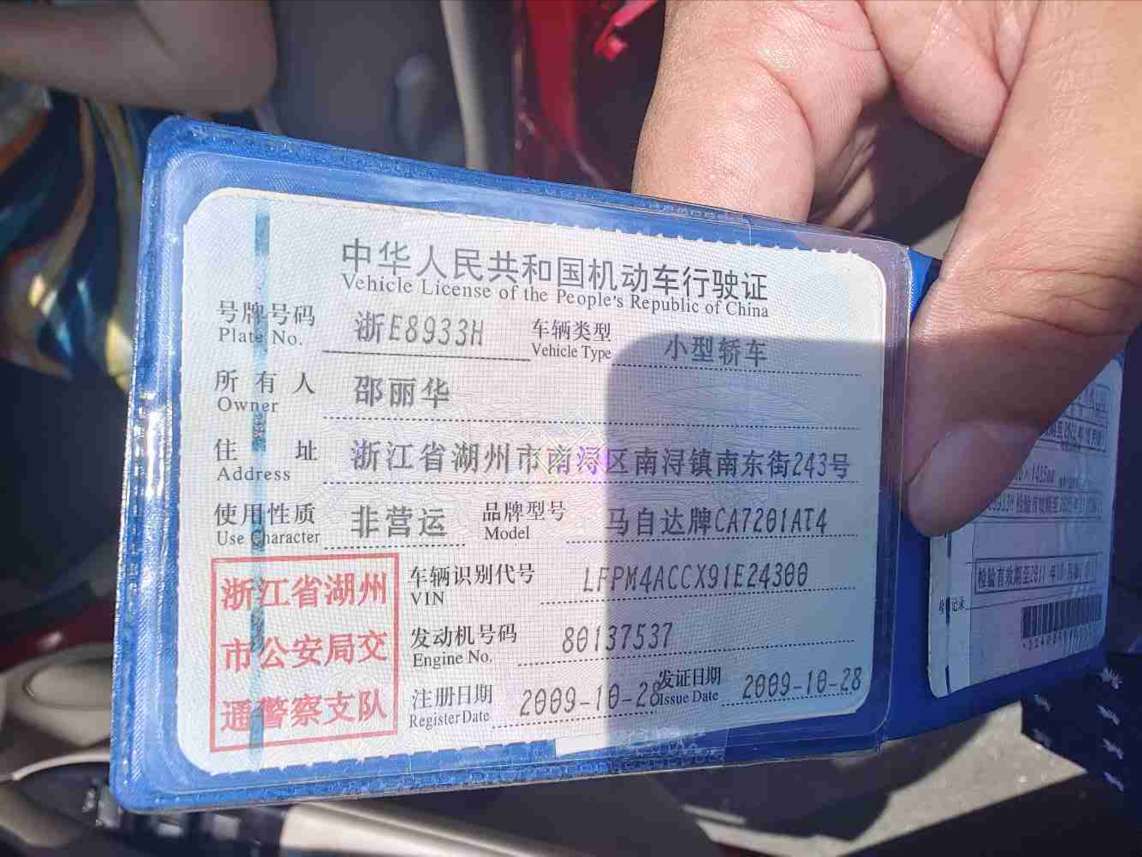 中华人民共和国机动车行驶证
Vehicle License of the People's Republic of China
号牌号码 浙E8933H 车辆类型 小型轿车
Plate No. Vehicle Type
所有人 邵丽华
Owner
住址 浙江省湖州市南浔区南浔镇南东街243号
Address
使用性质 非营运 品牌型号 马自达牌CA7201AT4
Use Character Model
浙江省湖州
市公安局交
通警察支队
车辆识别代号 LFPM4ACCX91E24300
VIN
发动机号码 80137537
Engine No.
注册日期 2009-10-28 发证日期 2009-10-28
Register Date Issue Date
检验有效期至2011年10月